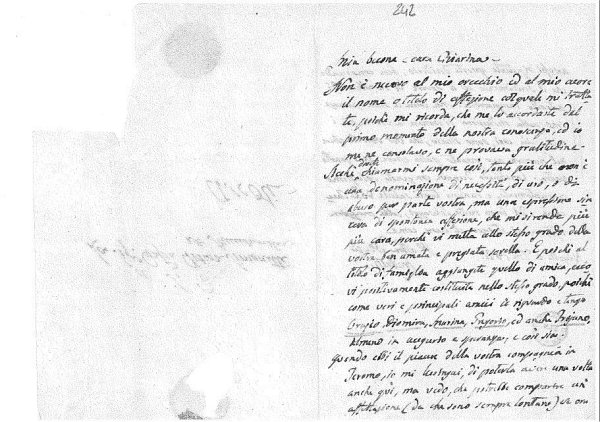 242
Mia buona - cara Chiarina -
Non è nuovo al mio orecchio ed al mio cuore
il nome o titolo di affezione col quale mi tratta
te, poichè mi ricorda, che me lo accordaste dal
primo momento della nostra conoscenza, ed io
me ne consolavo, e ne provava gratitudine
chiamarmi sempre così, tanto più che non è
una denominazione di necessità, di uso, o di
abuso per parte vostra, ma una espressione sin
cera di spontanea affezione, che mi si rende più
più cara, perchè vi mette allo stesso grado della
vostra ben amata e pregiata sorella. E poichè al
titolo di famiglia aggiungete quello di amica, ecco
vi positivamente costituita nello stesso grado, poichè
come veri e principali amici li riguardo e tengo
Orazio, Diomira, Marina, ed anche
Almeno in augurio e speranza, e così sia.
Quando ebbi il piacere della vostra compagnia in
Teramo, io mi lusingai, di poterla avere una volta
anche qui, ma vedo, che potrebbe comparire un'
affettazione (da che sono sempre lontano) se ora